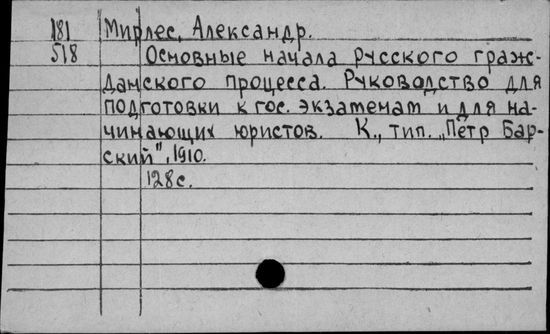 181 Мирлес, Александр.
518 Основные начала русского граж-
данского процесса. Руководство для
подготовки к гос. экзаменам и для на-
чинающих юристов. К., тип. „Петр Бар-
ский", 1910.
128с.